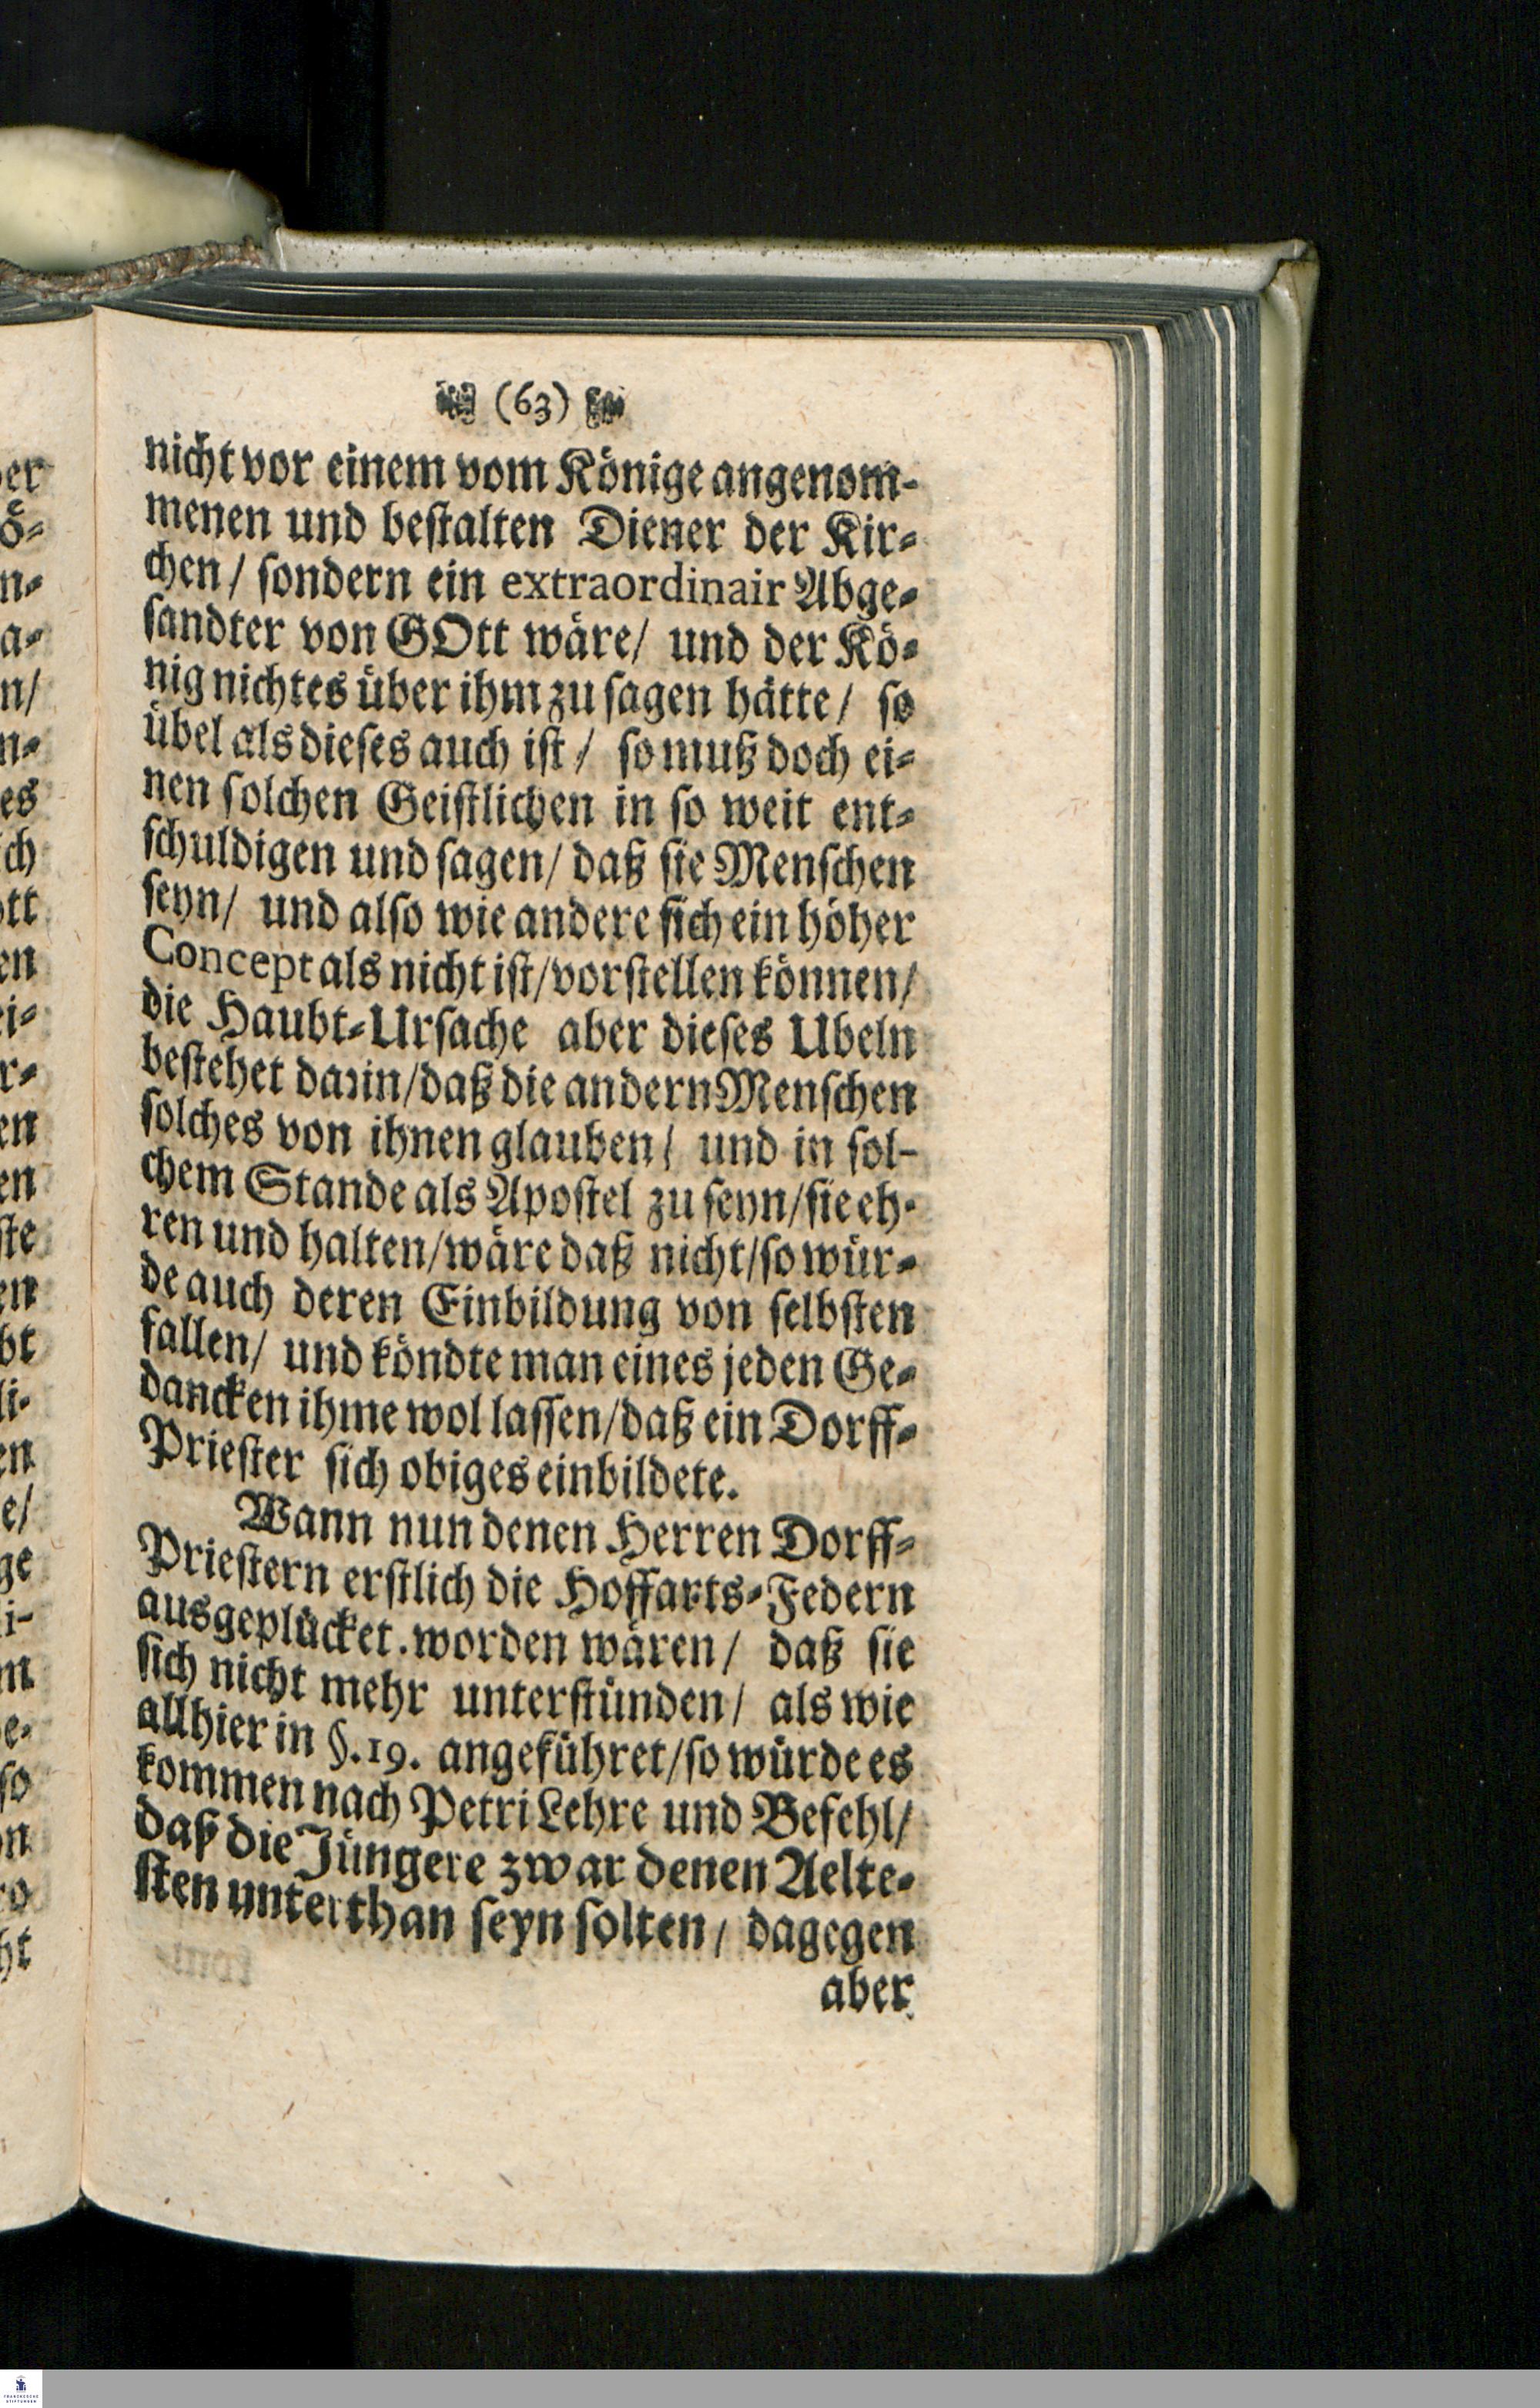 (63)
nicht vor einem vom Könige angenom-
menen und bestalten Diener der Kir-
chen/ sondern ein extraordinair Abge-
sandter von GOtt wäre/ und der Kö-
nig nichtes über ihm zu sagen hätte/ so
übel als dieses auch ist/ so muß doch ei-
nen solchen Geistlichen in so weit ent-
schuldigen und sagen/ daß sie Menschen
seyn/ und also wie andere sich ein höher
Concept als nicht ist/ vorstellen können/
die Haubt-Ursache aber dieses Ubeln
bestehet darin/ daß die andern Menschen
solches von ihnen glauben/ und in sol-
chem Stande als Apostel zu seyn/ sie eh-
ren und halten/ wäre daß nicht/ so wür-
de auch deren Einbildung von selbsten
fallen/ und köndte man eines jeden Ge-
dancken ihme wol lassen/ daß ein Dorff-
Priester sich obiges einbildete.
Wann nun denen Herren Dorff-
Priestern erstlich die Hoffarts-Federn
ausgeplücket. worden wären/ daß sie
sich nicht mehr unterstünden/ als wie
allhier in §. 19. angeführet/ so würde es
kommen nach Petri Lehre und Befehl/
daß die Jüngere zwar denen Aelte-
sten unterthan seyn solten/ dagegen
aber
er
ö-
n-
a-
n/
n-
es
ch
tt
en
i-
r-
en
en
ste
en
bt
li-
en
e/
ge
i-
m
e-
so
n
o
ht
FRANCKESCHE
STIFTUNGEN